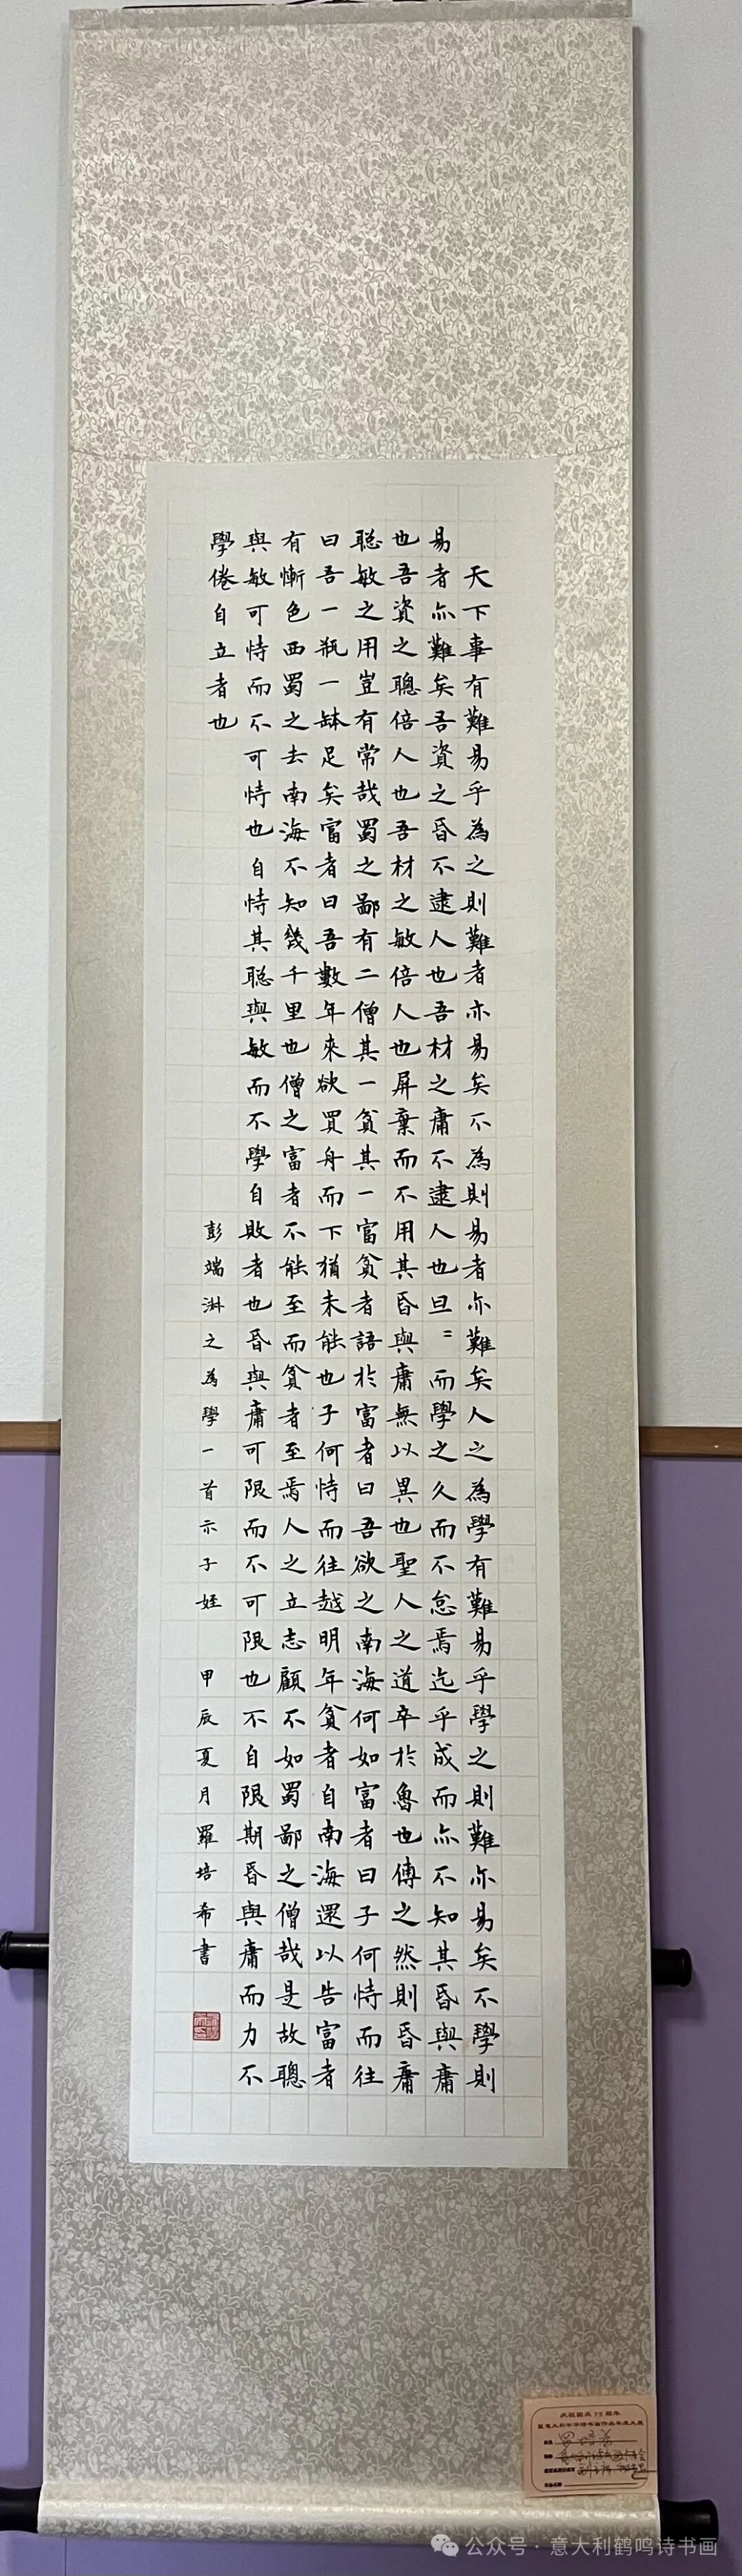 天下事有難易乎為之則難者亦易矣不為則易者亦難矣人之為學有難易乎學之則難亦易矣不學則
易者亦難矣吾資之昏不逮人也吾材之庸不逮人也旦〻而學之久而不怠焉迄乎成而亦不知其昏與庸
也吾資之聰倍人也吾材之敏倍人也屏棄而不用其昏與庸無以異也聖人之道卒於魯也傳之然則昏庸
聡敏之用豈有常哉蜀之鄙有二僧其一貧其一富貧者語於富者曰吾欲之南海何如富者曰子何恃而往
曰吾一瓶一缽足矣富者曰吾數年來欲買舟而下猶未能也子何恃而往越明年貧者自南海還以告富者
有慚色西蜀之去南海不知幾千里也僧之富者不能至而貧者至焉人之立志顧不如蜀鄙之僧哉是故聰
與敏可恃而不可恃也自恃其聡與敏而不學自敗者也昏與庸可限而不可限也不自限期昏與庸而力不
學倦自立者也
彭端淋之為學一首示子姪 甲辰夏月羅培希書
公众号·意大利鹤鸣诗书画